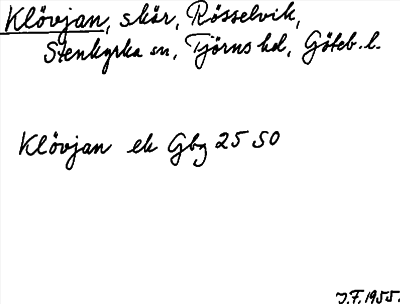 Klövjan, skär, Rösselvik,
Stenkyrka sn, Tjörns hd, Göteb. l.
Klövjan ek Gbg 25 SO
J.F. 1955.